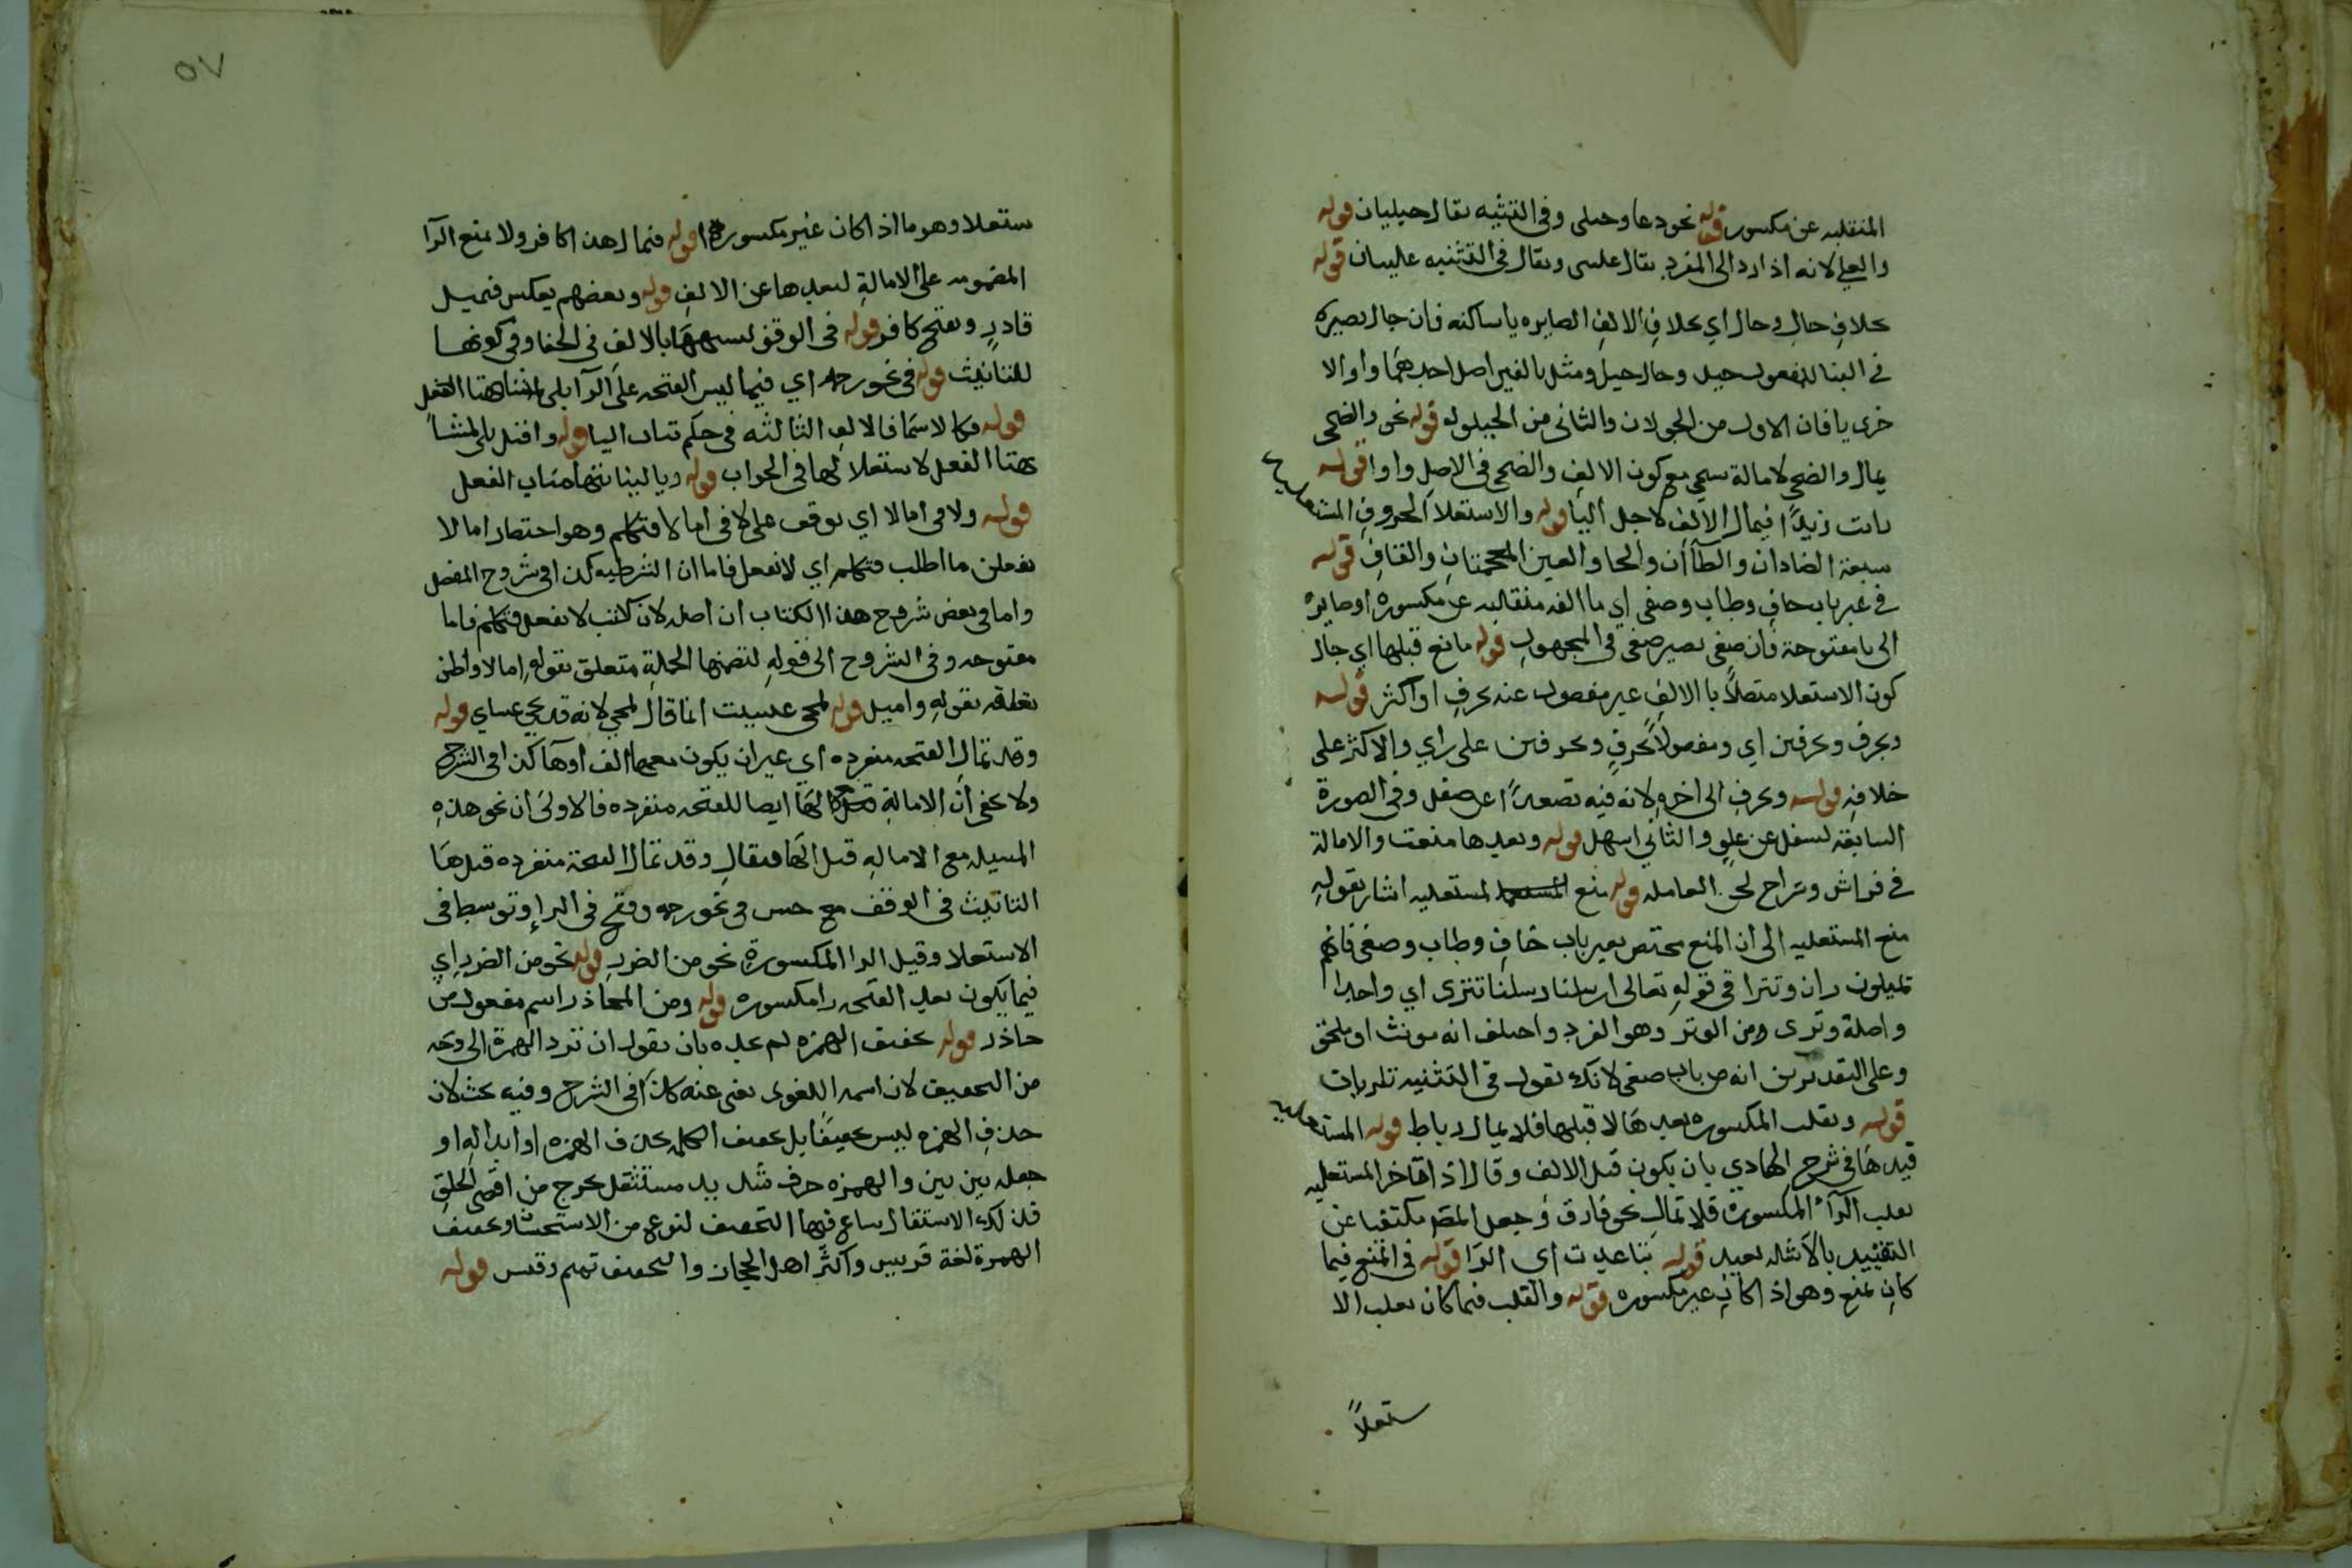 المنقلبه عن مكسور قوله نحو دعا وحبلى وفي التثنيه يقال حبليان قوله
والعلى لانه اذا رد الى المفرد يقال على ويقال في التثنيه عليان قوله
بخلاف جال وحال اي بخلاف الالف الصايره ياساكنه فان جال يصيره
في البنا للمفعول جيل وحال حيل ومثل بالفين اصل احدهما واو الا
خرى يا فان الاول من الجولان والثاني من الحيلوله قوله نحو والضحى
يمال والضحى لامالة سجى مع كون الالف والضحى في الاصل واوا قوله
رايت زيدا فيمال الالف لاجل اليا قوله والاستعلا الحروف المستعليه
سبعة الضادان والطاان والخا والغين المعجمتان والقاف قوله
في غير باب خاف وطاب وصغى اي ما الفه منقلبه عن مكسوره او صايرة
الى يا مفتوحة فان صغى يصير صغى في المجهول قوله مانع قبلها اي حال
كون الاستعلا متصلا با الالف غير مفصول عنه بحرف او اكثر قوله
وبحرف وبحرفين اي ومفصولا بحرف وبحرفين على راي والاكثر على
خلافه قوله وبحرف الى اخره لانه فيه تصعدا عن سفل وفي الصورة
السابقه تسفل عن علو والثاني اسهل قوله وبعدها منعت والامالة
في فراش وسراح العامله قوله منع المستعليه اشار بقوله
منع المستعليه الى ان المنع مختص بغير باب خاف وطاب وصغى فانهم
تميلون ران وتترا في قوله تعالى ارسلنا رسلنا تترى اي واحدا
واصلة وترى ومن الوتر وهو الفرد واختلف انه مونث او ملحق
وعلى التقديرين انه من باب صغى لانك تقول في التثنيه تتريات
قوله وتغلب المكسوره بعدها لا قبلها فلا يمال رباط قوله المستعليه
قيدها في شرح الهادي بان يكون قبل الالف وقال اذا تاخر المستعليه
يغلب الراء المكسورة فلا تمال نحو فارق وجعل المص مكتفيا عن
التقييد بالامثله بعيد قوله تباعدت اي الرا قوله في المنع فيما
كان تمنع وهو اذا كان غير مكسوره قوله والقلب فيما كان يغلب الا
ستعلاً
٥٧
ستعلا وهو ما اذا كان غير مكسورة قوله فيمال هذا كافر ولا يمنع الرا
المضمومه على الامالة لبعدها عن الالف قوله وبعضهم يعكس فيميل
قادر ويفتح كافر قوله في الوقف لشبهها بالالف في الخفا وفي كونها
للتانيث قوله في نحو رحمه اي فيما ليس الفتحه على الرا
قوله فكالاسما فالالف الثالثه في حكم بنات اليا قوله وا
الفعل لاستقلالها في الجواب قوله ويا لنيابتها مناب الفعل
قوله ولا في اما لا اي يوقف على لا في اما لا فتكلم وهو اختصار اما لا
تفعلن ما اطلب فتكلم اي لا تفعل فاما ان الشرطيه كذا في شروح المفصل
واما في بعض شروح هذا الكتاب ان اصله لان كنت لا تفعل فتكلم فاما
مفتوحه وفي الشروح الى قوله لتضمنها الجملة متعلق بقوله اما لا واظن
تعلقه بقوله واميل قوله لمجي عسيت انما قال لمجي لانه قد يجي عساي قوله
وقد تمال الفتحه منفرده اي غير ان يكون معها الف او ها كذا في الشرح
ولا يخفى ان الامالة ايضا للفتحه منفرده فالاولى ان نحو هذه
المسيله مع الاماله قبل الها فيقال وقد تمال الفتحة منفرده قبل ها
التانيث في الوقف حسن في نحو رحمه وقبح في الرا وتوسط في
الاستعلا وقبل الرا المكسورة نحو من الضرر قوله نحو من الضرر اي
فيما يكون بعد الفتحه را مكسوره قوله ومن المحاذر اسم مفعول من
حاذر قوله تخفيف الهمزه لم يحده بان يقول ان ترد الهمزة الى وجه
من التخفيف لان اسمه اللغوي يغني عنه كذا في الشرح وفيه بحث لان
حذف الهمزه ليس تخفيفا بل تخفيف الكلمه بحذف الهمزه او ابداله او
جعله بين بين والهمزه حرف شديد مستثقل يخرج من اقصى الحلق
فلذلك الاستثقال ساع فيها التخفيف لنوع من الاستحسان وتخفيف
الهمزة لغة قريش واكثر اهل الحجاز والتحقيق تميم وقيس قوله